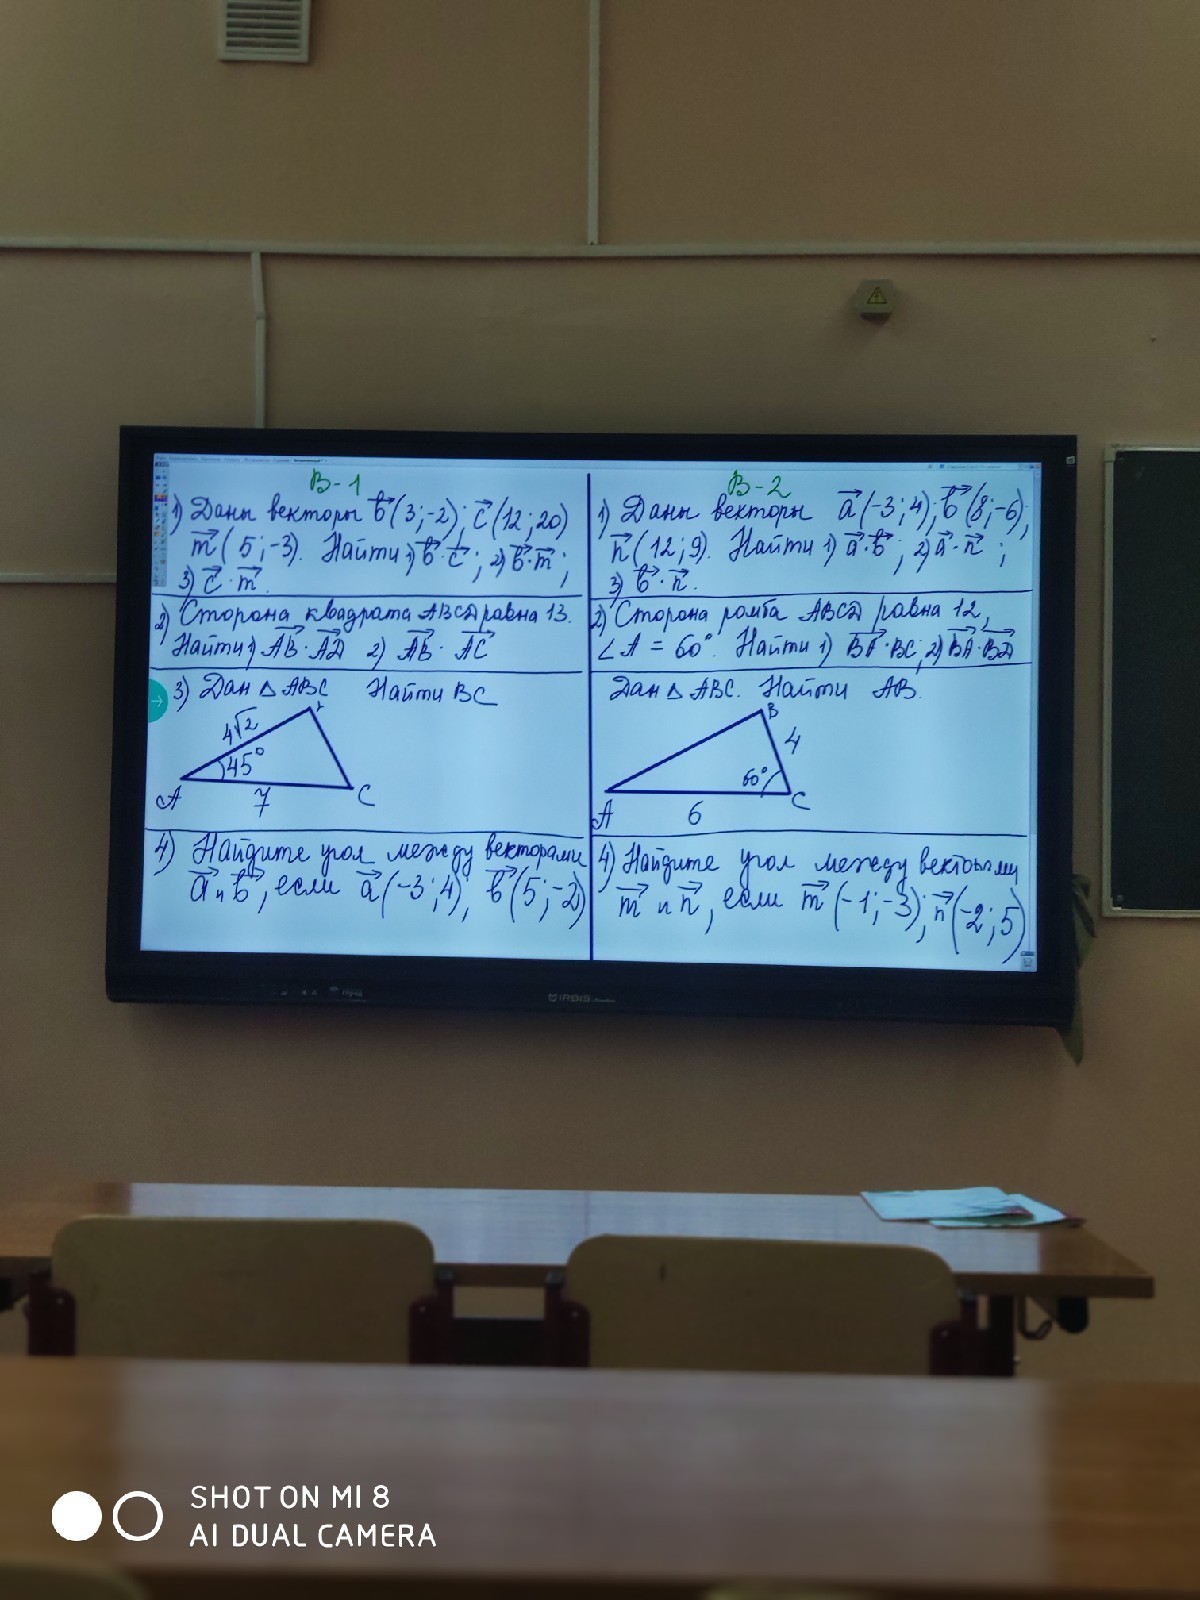 В-1
1) Даны векторы в(3;-2); с(12;20)
m(5;-3). Найти 1) в·с; 2) в·m;
3) с·m.
2) Сторона квадрата ABCD равна 13.
Найти 1) AB·AD 2) AB·AC
3) Дан △ABC Найти BC
4√2
45°
A
7
C
4) Найдите угол между векторами
a и в, если a(-3;4); в(5;-2)
В-2
1) Даны векторы a(-3;4); в(8;-6),
n(12;9). Найти 1) a·в; 2) a·n;
3) в·n.
2) Сторона ромба ABCD равна 12,
∠A = 60°. Найти 1) BA·BC; 2) BA·BD
Дан △ABC. Найти AB.
B
4
60°
A
6
C
4) Найдите угол между векторами
m и n, если m(-1;-3); n(-2;5)
IRBIS
SHOT ON MI 8
AI DUAL CAMERA